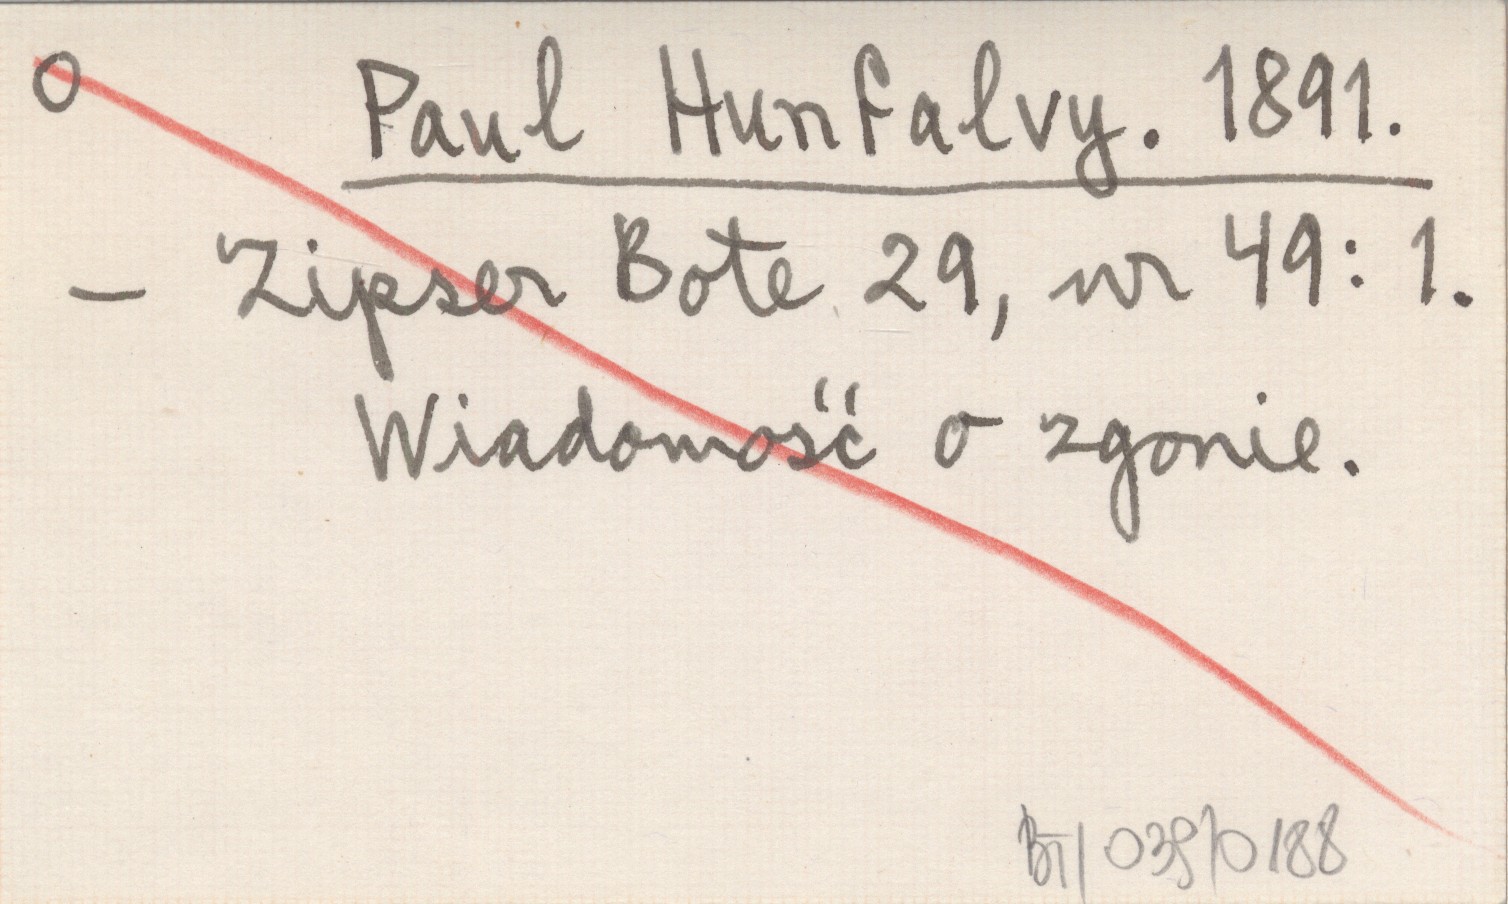 O Paul Hunfalvy. 1891.
— Zipser Bote 29, nr 49: 1.
Wiadomość o zgonie.
BT/039/0188